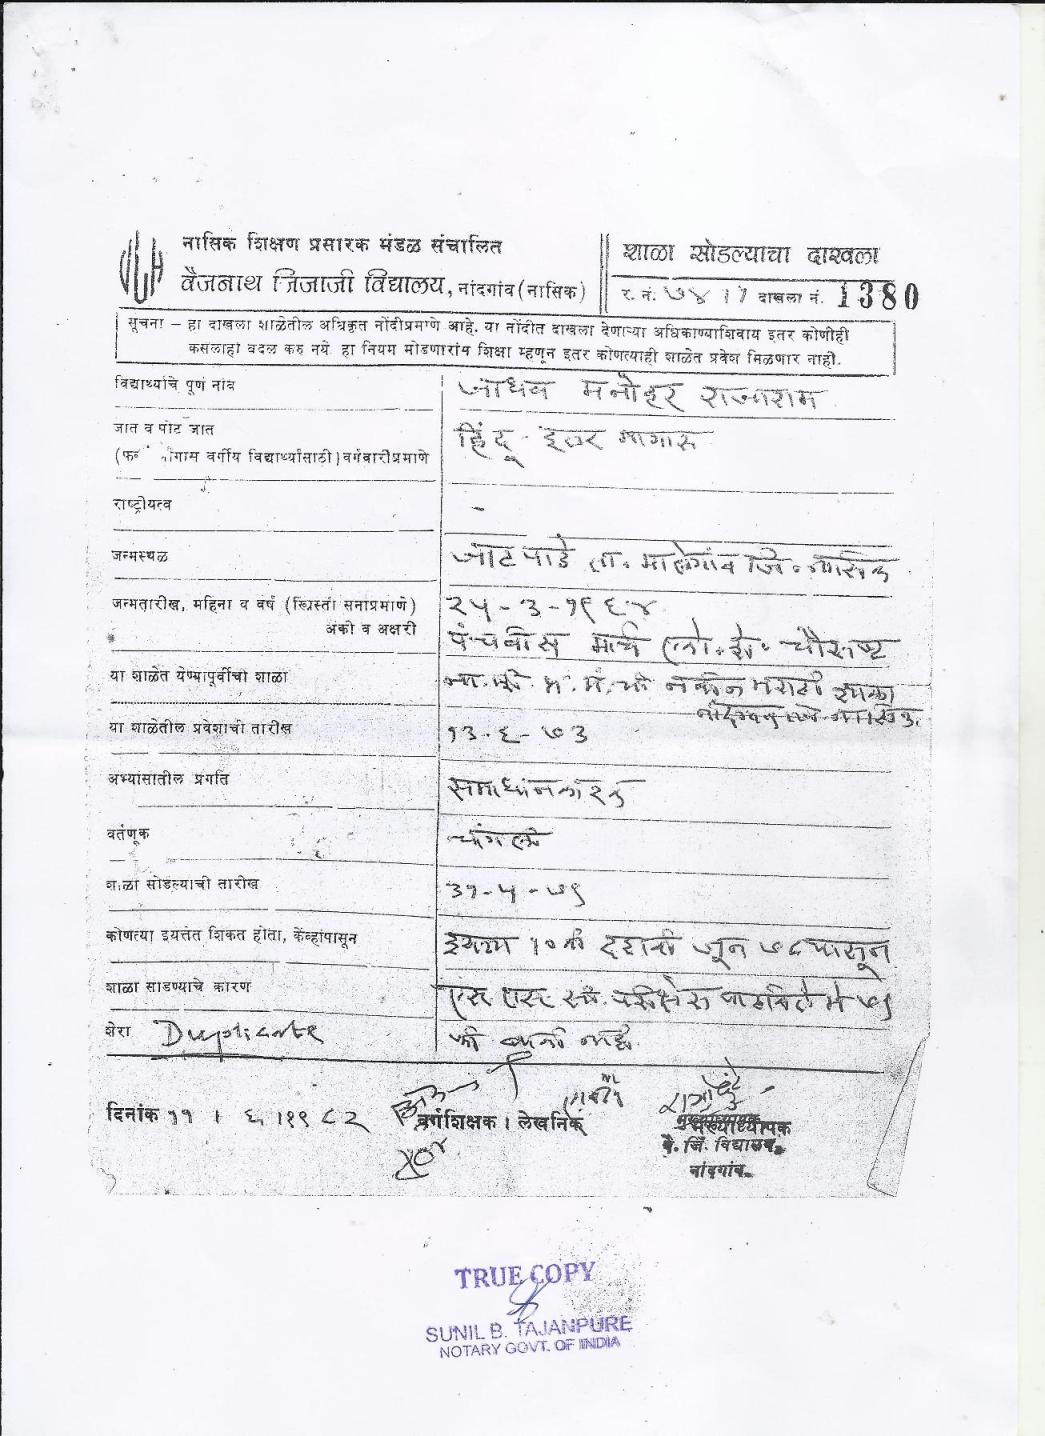 नासिक शिक्षण प्रसारक मंडळ संचालित
वैजनाथ जिजाजी विद्यालय, नांदगांव (नासिक)
शाळा सोडल्याचा दाखला
र. नं. ७४१७ दाखला नं. 1380
सूचना – हा दाखला शाळेतील अधिकृत नोंदीप्रमाणे आहे. या नोंदीत दाखला देणाऱ्या अधिकाऱ्याशिवाय इतर कोणीही
कसलाही बदल करु नये. हा नियम मोडणारांस शिक्षा म्हणून इतर कोणत्याही शाळेत प्रवेश मिळणार नाही.
विद्यार्थ्याचे पूर्ण नांव जाधव मनोहर राजाराम
जात व पोट जात हिंदू - इतर मागास
वर्गीय विद्यार्थ्यांसाठी) वर्गवारीप्रमाणे
राष्ट्रीयत्व -
जन्मस्थळ जाटपाडे ता. मालेगांव जि. नासिक
जन्मतारीख, महिना व वर्ष (ख्रिस्ती सनाप्रमाणे) २५-३-१९६४
अंकी व अक्षरी पंचवीस मार्च चौसष्ट
या शाळेत येण्यापूर्वीची शाळा नवीन मराठी शाळा
या शाळेतील प्रवेशाची तारीख १३-६-७३
अभ्यासातील प्रगति समाधानकारक
वर्तणूक चांगली
शाळा सोडल्याची तारीख ३१-५-७९
कोणत्या इयत्तेत शिकत होता, केंव्हापासून इयत्ता १० वी दहावी जून ७८ पासून
शाळा सोडण्याचे कारण एस. एस. सी. परीक्षेस पाठविले मे ७९
शेरा Duplicate फी बाकी नाही.
दिनांक ११ । ६ ।१९८२
वर्गशिक्षक । लेखनिक
मुख्याध्यापक
वै. जि. विद्यालय,
नांदगांव.
TRUE COPY
SUNIL B. TAJANPURE
NOTARY GOVT. OF INDIA